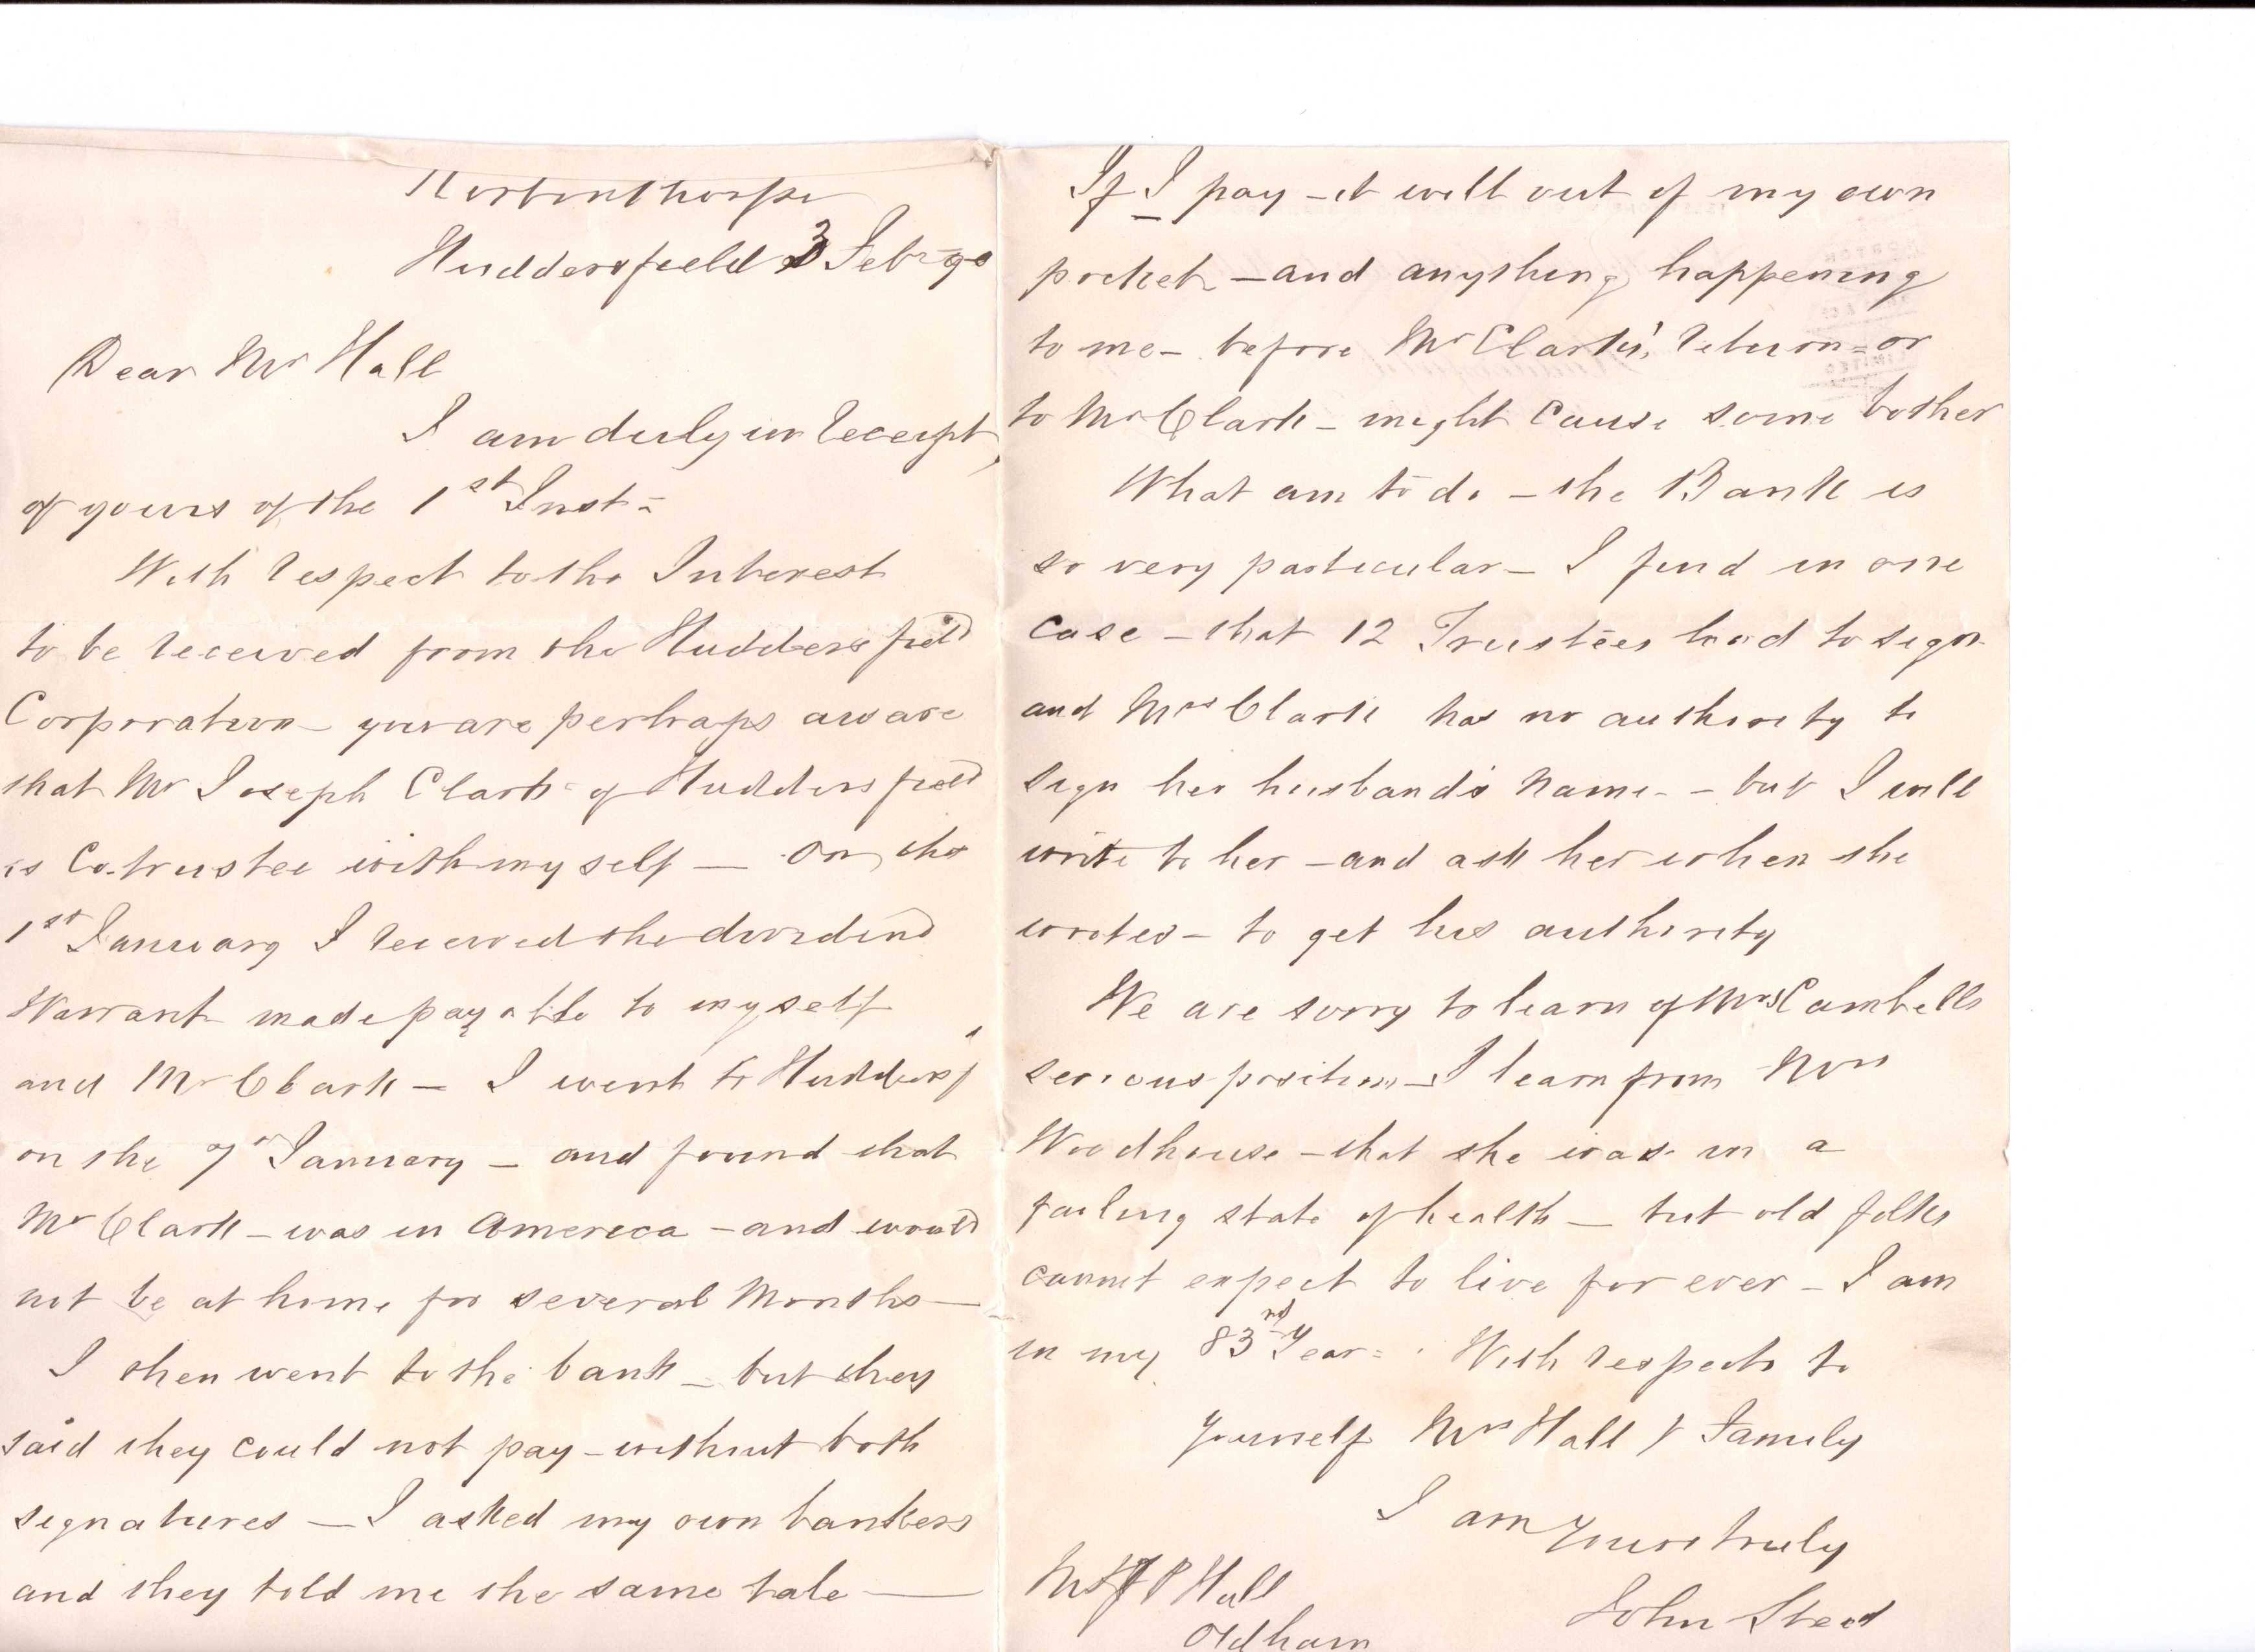 Kirkinthorpe
Huddersfield 3 Feby 90
Dear Mr Hall
I am duly in receipt
of yours of the 1st Inst -
With respect to the Interest
to be received from the Huddersfield
Corporation - you are perhaps aware
that Mr Joseph Clark - of Huddersfield
is Co-trustee with myself — on the
1st January I received the dividend
Warrant made payable to myself
and Mr Clark — I went to Huddersf
on the 7 January — and found that
Mr Clark — was in America — and would
not be at home for several Months —
I then went to the bank — but they
said they could not pay — without both
signatures — I asked my own bankers
and they told me the same tale —
If I pay — it will out of my own
pocket — and anything happening
to me — before Mr Clark's return — or
to Mr Clark — might cause some bother
What am to do — the Bank is
so very particular — I find in one
case — that 12 Trustees had to sign
and Mrs Clark has no authority to
sign her husband's name - — but I will
write to her — and ask her when she
writes — to get his authority
We are sorry to learn of Mrs Cambells
serious position — I learn from Mrs
Woodhouse — that she was in a
failing state of health — but old folks
cannot expect to live for ever — I am
in my 83rd Year - . With respects to
Yourself Mrs Hall & Family
I am Yours truly
John Steed
Mr P Hall
Oldham